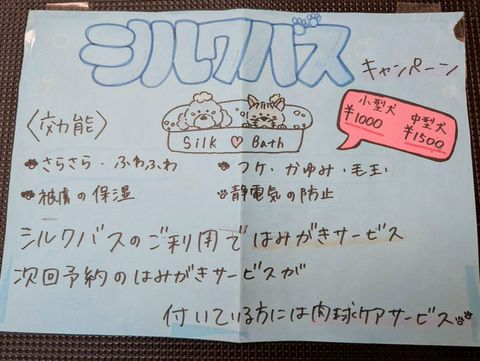 シルクバス
キャンペーン
小型犬
¥1000
中型犬
¥1500
Silk ♡ Bath
〈効能〉
さらさら・ふわふわ
フケ・かゆみ・毛玉
被膚の保湿
静電気の防止
シルクバスのご利用ではみがきサービス
次回予約のはみがきサービスが
付いている方には肉球ケアサービス